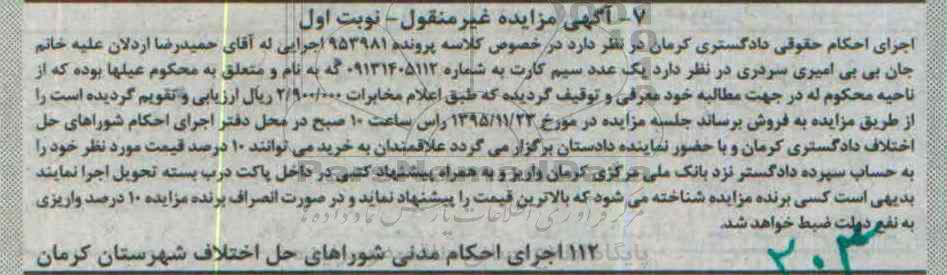 ۷- آگهی مزایده غیرمنقول- نوبت اول
اجرای احکام حقوقی دادگستری کرمان در نظر دارد در خصوص کلاسه پرونده ۹۵۳۹۸۱ اجرایی له آقای حمیدرضا اردلان علیه خانم
جان بی بی امیری سردری در نظر دارد یک عدد سیم کارت به شماره ۰۹۱۳۱۴۰۵۱۱۲ که به نام و متعلق به محکوم علیها بوده که از
ناحیه محکوم له در جهت مطالبه خود معرفی و توقیف گردیده که طبق اعلام مخابرات ۲/۹۰۰/۰۰۰ ریال ارزیابی و تقویم گردیده است را
از طریق مزایده به فروش برساند جلسه مزایده در مورخ ۱۳۹۵/۱۱/۲۳ راس ساعت ۱۰ صبح در محل دفتر اجرای احکام شوراهای حل
اختلاف دادگستری کرمان و با حضور نماینده دادستان برگزار می گردد علاقمندان به خرید می توانند ۱۰ درصد قیمت مورد نظر خود را
به حساب سپرده دادگستر نزد بانک ملی مرکزی کرمان واریز و به همراه پیشنهاد کتبی در داخل پاکت درب بسته تحویل اجرا نمایند
بدیهی است کسی برنده مزایده شناخته می شود که بالاترین قیمت را پیشنهاد نماید و در صورت انصراف برنده مزایده ۱۰ درصد واریزی
به نفع دولت ضبط خواهد شد.
۱۱۲ اجرای احکام مدنی شوراهای حل اختلاف شهرستان کرمان